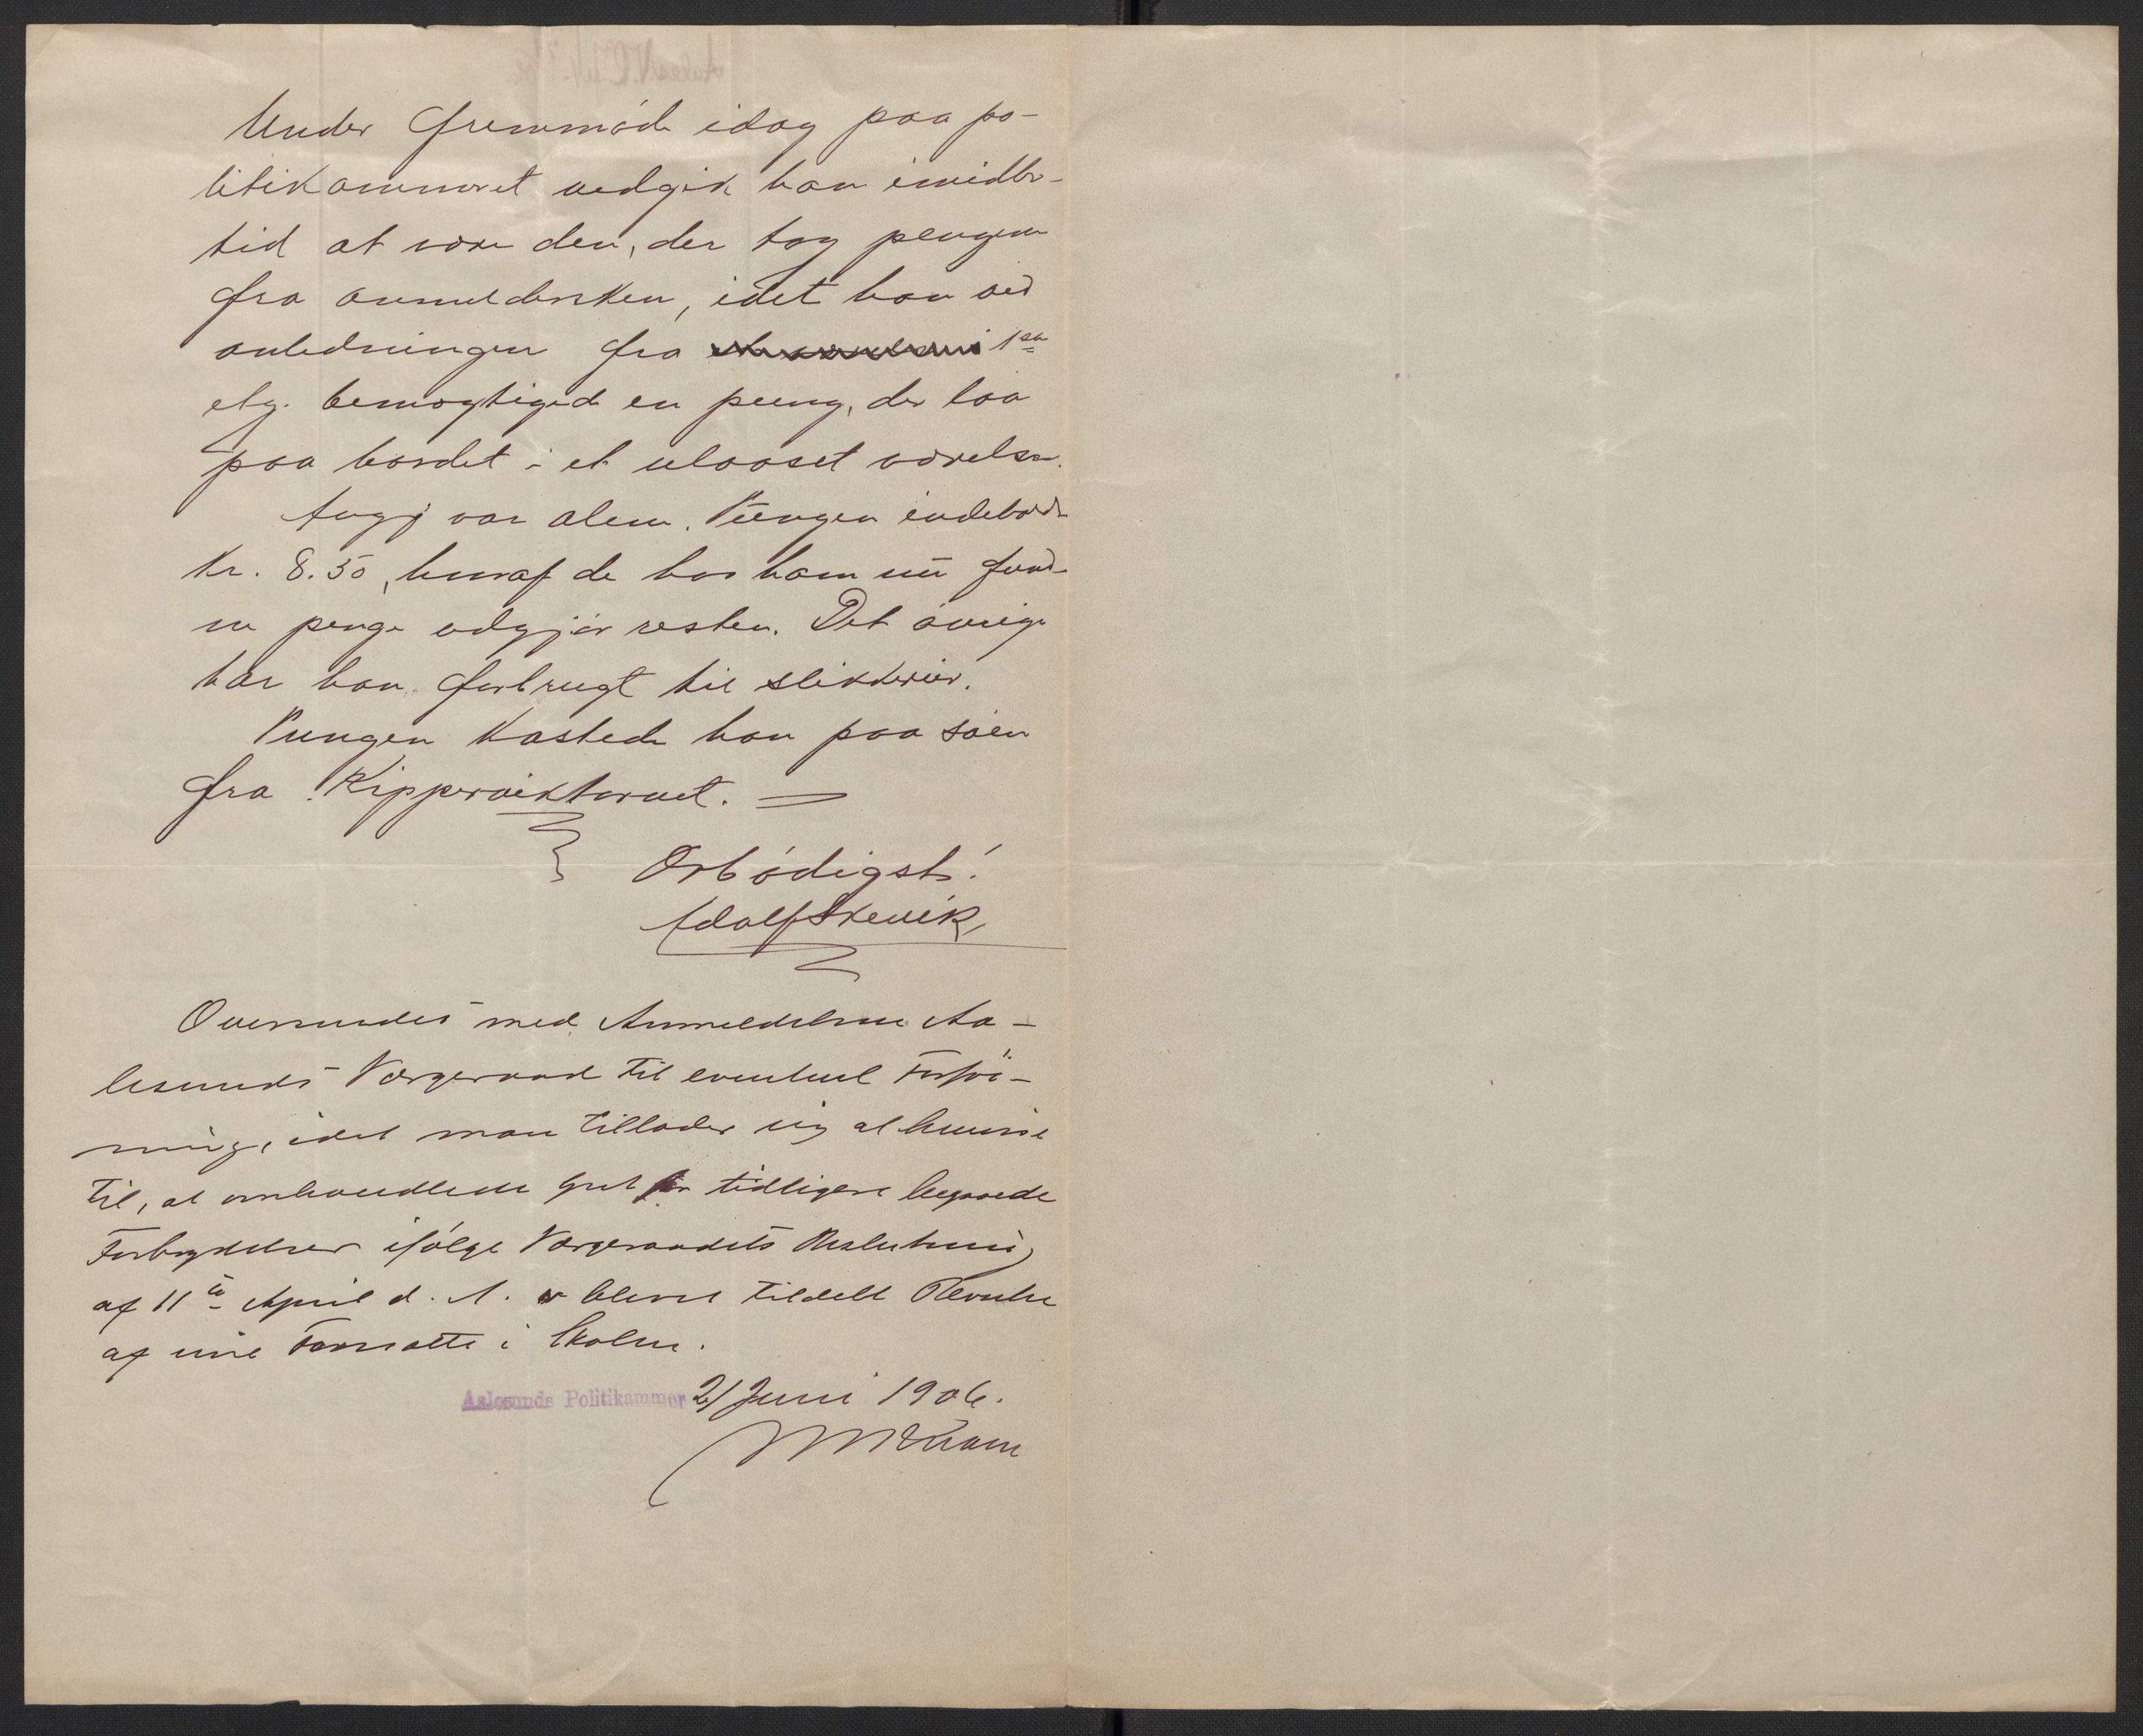 Under fremmøde idag paa po-
litikammeret vedgik han imidler-
tid at være den, der tog pengene
fra anmeldersken, idet han ved
anledningen fra 1ste
etg. bemægtigede en pung, der laa
paa bordet i et ulaaset værelse.
Angj var alene. Pungen indeholdt
kr. 8.50, hvoraf de hos ham nu fund-
ne penge udgjør resten. Det øvrige
har han forbrugt til slikkerier.
Pungen kastede han paa søen
fra Kippervigtorvet.
Ærbødigst!
Adolf Skevik,
Oversendes med Anmeldelsen Aa-
lesunds Værgeraad til eventuel Forføi-
ning, idet man tillader sig at henvise
til, at omhandlede gut for tidligere begaaede
Forbrydelser ifølge Værgeraadets Beslutning
af 11te April d. A. er bleven tildelt Revselse
af sine Foresatte i Skolen.
Aalesunds Politikammer 21 Juni 1906.